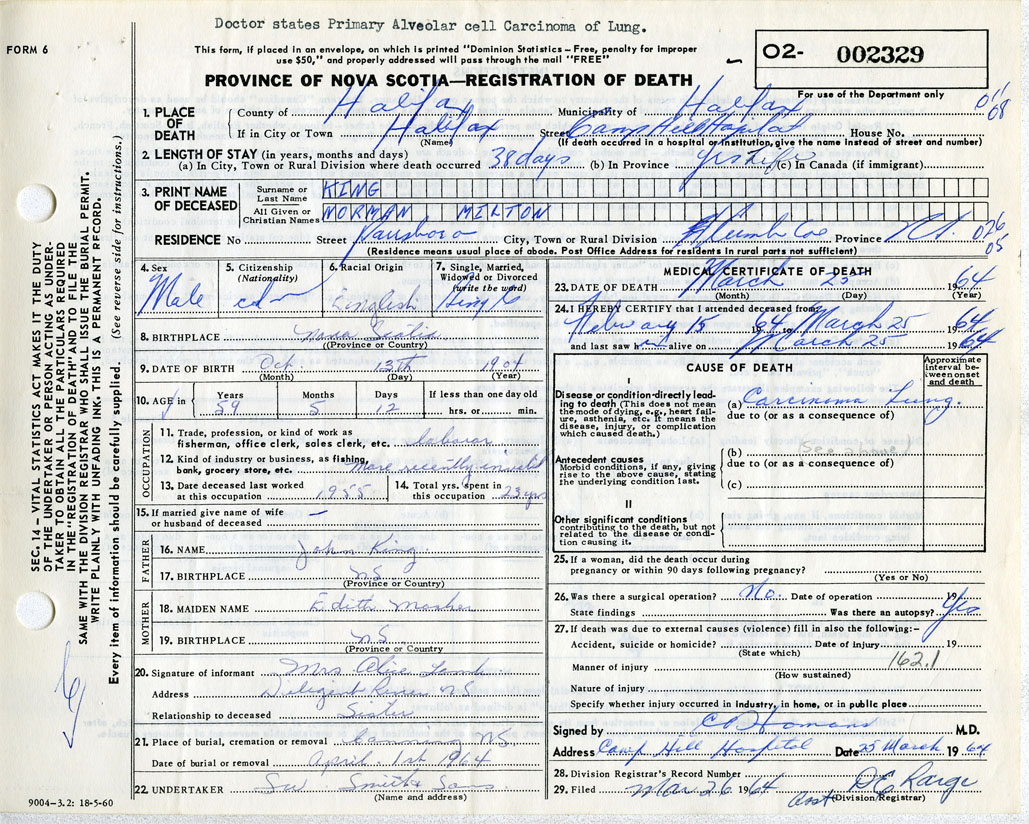 Doctor states Primary Alveolar cell Carcinoma of Lung.
FORM 6
This form, if placed in an envelope, on which is printed "Dominion Statistics – Free, penalty for improper
use $50," and properly addressed will pass through the mail "FREE"
O2- 002329
For use of the Department only
PROVINCE OF NOVA SCOTIA—REGISTRATION OF DEATH
1. PLACE OF DEATH
County of Halifax Municipality of Halifax 011 08
If in City or Town Halifax Street Camp Hill Hospital House No.
(Name) (If death occurred in a hospital or institution, give the name instead of street and number)
2. LENGTH OF STAY (in years, months and days)
(a) In City, Town or Rural Division where death occurred 38 days (b) In Province Yrs Life (c) In Canada (if immigrant)
3. PRINT NAME OF DECEASED
Surname or Last Name KING
All Given or Christian Names NORMAN MILTON
RESIDENCE No Street Parrsboro City, Town or Rural Division Province N.S. 026 05
(Residence means usual place of abode. Post Office Address for residents in rural parts not sufficient)
4. Sex Male
5. Citizenship (Nationality) cdn
6. Racial Origin English
7. Single, Married, Widowed or Divorced (write the word) Single
8. BIRTHPLACE Nova Scotia
(Province or Country)
9. DATE OF BIRTH Oct. 13th 1904
(Month) (Day) (Year)
10. AGE in Years 59 Months 5 Days 12 If less than one day old hrs. or min.
OCCUPATION
11. Trade, profession, or kind of work as
fisherman, office clerk, sales clerk, etc. laborer
12. Kind of industry or business, as fishing,
bank, grocery store, etc. More recently invalid
13. Date deceased last worked
at this occupation 1955
14. Total yrs. spent in
this occupation 23 yrs
15. If married give name of wife
or husband of deceased —
FATHER
16. NAME John King
17. BIRTHPLACE N.S.
(Province or Country)
MOTHER
18. MAIDEN NAME Edith Mosher
19. BIRTHPLACE N.S.
(Province or Country)
20. Signature of informant Mrs. Alice Lamb
Address Diligent River N.S
Relationship to deceased Sister
21. Place of burial, cremation or removal N.S
Date of burial or removal April 1st 1964
22. UNDERTAKER Smith & Sons
(Name and address)
9004-3.2: 18-5-60
MEDICAL CERTIFICATE OF DEATH
23. DATE OF DEATH March 25 1964
(Month) (Day) (Year)
24. I HEREBY CERTIFY that I attended deceased from
February 15 1964 to March 25 1964
and last saw him alive on March 25 1964
CAUSE OF DEATH
Approximate interval between onset and death
I
Disease or condition directly leading to death (This does not mean the mode of dying, e.g., heart failure, asthenia, etc. It means the disease, injury, or complication which caused death.)
(a) Carcinoma Lung.
due to (or as a consequence of)
Antecedent causes
Morbid conditions, if any, giving rise to the above cause, stating the underlying condition last.
(b) (see above)
due to (or as a consequence of)
(c)
II
Other significant conditions
contributing to the death, but not related to the disease or condition causing it.
25. If a woman, did the death occur during
pregnancy or within 90 days following pregnancy?
(Yes or No)
26. Was there a surgical operation? No. Date of operation 19
State findings Was there an autopsy? Yes
27. If death was due to external causes (violence) fill in also the following:–
Accident, suicide or homicide? Date of injury 19
(State which)
162.1
Manner of injury
(How sustained)
Nature of injury
Specify whether injury occurred in industry, in home, or in public place
Signed by M.D.
Address Camp Hill Hospital Date 25 March 1964
28. Division Registrar's Record Number
29. Filed Mar 26 1964
Asst (Division Registrar)
SEC. 14 – VITAL STATISTICS ACT MAKES IT THE DUTY
OF THE UNDERTAKER OR PERSON ACTING AS UNDER-
TAKER TO OBTAIN ALL THE PARTICULARS REQUIRED
IN THE "REGISTRATION OF DEATH" AND TO FILE THE
SAME WITH THE DIVISION REGISTRAR WHO SHALL ISSUE THE BURIAL PERMIT.
WRITE PLAINLY WITH UNFADING INK. THIS IS A PERMANENT RECORD.
Every item of information should be carefully supplied. (See reverse side for instructions.)